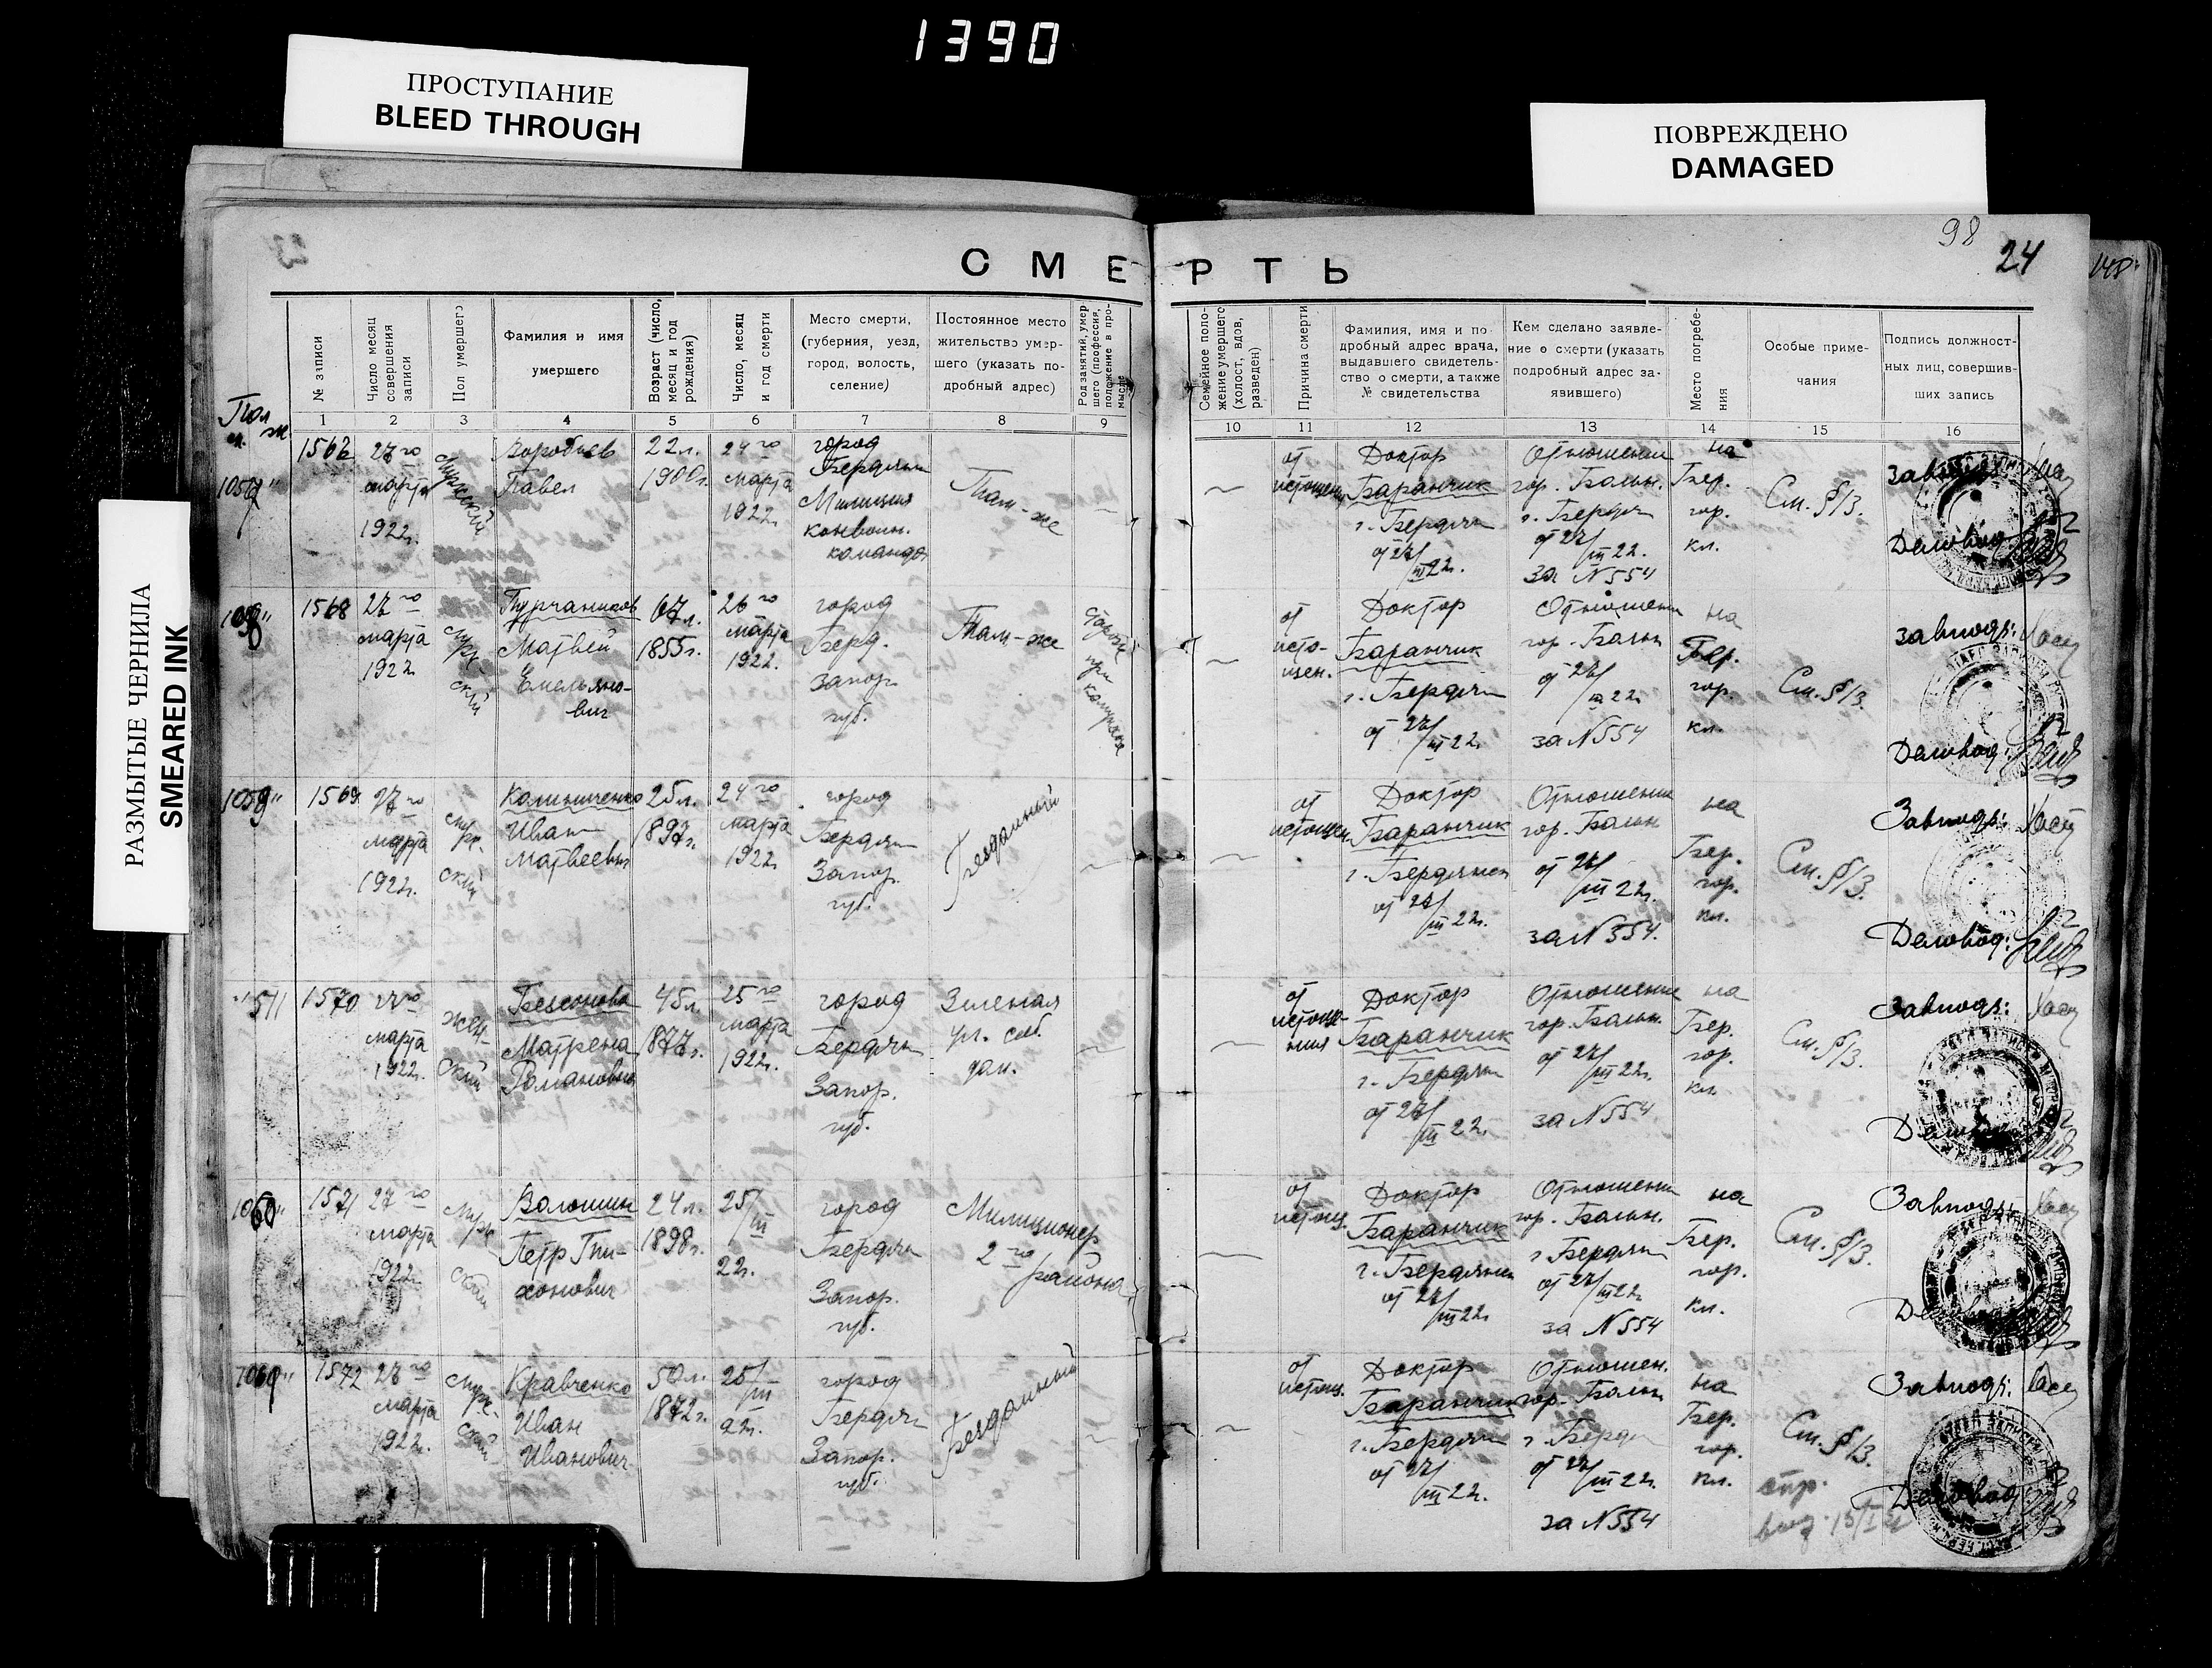 1390
ПРОСТУПАНИЕ
BLEED THROUGH
ПОВРЕЖДЕНО
DAMAGED
РАЗМЫТЫЕ ЧЕРНИЛА
SMEARED INK
98
24
СМЕРТЬ
№ записи
Число месяц совершения записи
Пол умершего
Фамилия и имя умершего
Возраст (число, месяц и год рождения)
Число, месяц и год смерти
Место смерти, (губерния, уезд, город, волость, селение)
Постоянное место жительство умершего (указать подробный адрес)
Род занятий, умершего (профессия, положение в промысле
Семейное положение умершего (холост, вдов, разведен)
Причина смерти
Фамилия, имя и подробный адрес врача, выдавшего свидетельство о смерти, а также № свидетельства
Кем сделано заявление о смерти (указать подробный адрес заявившего)
Место погребения
Особые примечания
Подпись должностных лиц, совершивших запись
Пол
м. ж.
1 2 3 4 5 6 7 8 9 10 11 12 13 14 15 16
27го марта 1922г.
Мужской
Воробьев Павел
22л. 1900г.
24го марта 1922г.
город Бердян Милиция конвойн. команда
Там-же
от истощени
Доктор Баранчик г. Бердян от 27/III 22г.
Отношении гор. Больн. г. Бердян от 27/III 22г. за N554
на Бер. гор. кл.
См. §/3.
Завподъ:
Деловод:
1568
27го марта 1922
мужский
Матвей Емельянович
67л. 1855г.
26го марта 1922г.
город Берд. Запор. губ.
Там-же
от истощен.
Доктор Баранчик г. Бердян от 27/III 22г.
Отношени гор. Больн от 27/III 22г. за N554
на Бер. гор. кл.
См. §/3.
Завподъ:
Деловод:
1059"
1569
27го марта 1922г.
мужский
Калиниченко Иван Матвеевич
25л. 1897г.
24го марта 1922г.
город Бердян Запор. губ.
Бездомный
от истощен.
Доктор Баранчик г. Бердянск от 27/III 22г.
Отношении гор. Больн от 27/III 22г. за N554.
на Бер. гор. кл.
См. §/3.
Завподъ:
Деловод:
511
1570
27го марта 1922г.
женский
Бессонова Матрена Романовна
45л. 1877г.
25го марта 1922г.
город Бердян Запор. губ.
Зеленая ул. соб. дом.
от истощения
Доктор Баранчик г. Бердян от 27/III 22г.
Отношении гор. Больн. от 27/III 22г. за N554
на Бер. гор. кл.
См. §/3.
Завподъ:
Деловод:
1060"
1571
27го марта 1922г.
мужский
Волошин Петр Тихонович
24л. 1898г.
25/III 22г.
город Бердян Запор. губ.
Милиционер 2го района
от истощ.
Доктор Баранчик г. Бердянск от 27/III 22г.
Отношении гор. Больн. г Бердян от 27/III 22г. за N554
на Бер. гор. кл.
См. §/3.
Завподъ:
Деловод:
1572
27го марта 1922г.
мужский
Кравченко Иван Иванович
50л. 1872г.
25/III 22г.
город Бердян Запор. губ.
Бездомный
от истощ.
Доктор Баранчик г. Бердян от 27/III 22г.
Отношен. гор. Больн г. Бердя от 27/III 22г. за N554
на Бер. гор. кл.
См. §/3.
Завподъ:
Деловод: